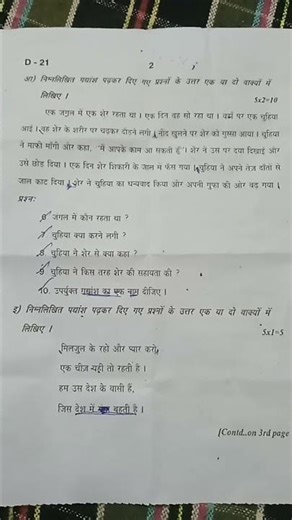 D - 21
2
आ) निम्नलिखित पद्यांश पढ़कर दिए गए प्रश्नों के उत्तर एक या दो वाक्यों में
लिखिए ।
5x2=10
एक जंगल में एक शेर रहता था । एक दिन वह सो रहा था । वहाँ पर एक चुहिया
आई । वह शेर के शरीर पर चढ़कर दौड़ने लगी । नींद खुलने पर शेर को गुस्सा आया । चुहिया
ने माफी माँगी और कहा, "मैं आपके काम आ सकती हूँ"। शेर ने उस पर दया दिखाई और
उसे छोड़ दिया । एक दिन शेर शिकारी के जाल में फंस गया । चुहिया ने अपने तेज दाँतों से
जाल काट दिया । शेर ने चुहिया का धन्यवाद किया और अपनी गुफा की ओर बढ़ गया ।
प्रश्न:
6 जंगल में कौन रहता था ?
7 चुहिया क्या करने लगी ?
8 चुहिया ने शेर से क्या कहा ?
9 चुहिया ने किस तरह शेर की सहायता की ?
10. उपर्युक्त गद्यांश का एक नाम दीजिए ।
इ) निम्नलिखित पद्यांश पढ़कर दिए गए प्रश्नों के उत्तर एक या दो वाक्यों में
लिखिए ।
5x1=5
मिलजुल के रहो और प्यार करो,
एक चीज़ यही तो रहती है ।
हम उस देश के वासी हैं,
जिस देश में बहती है ।
[Contd..on 3rd page